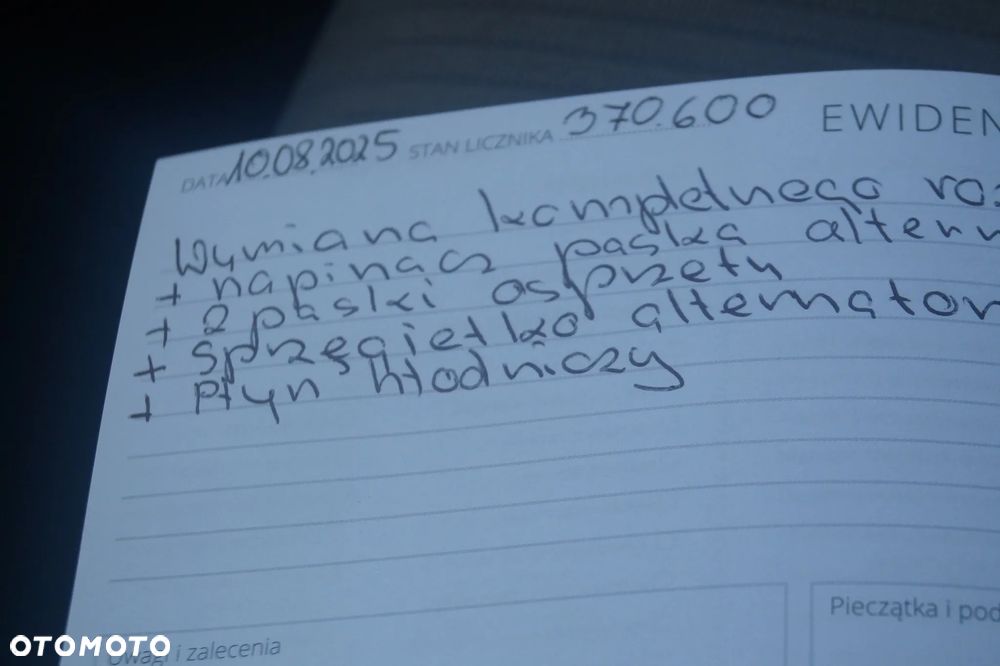 DATA 10.08.2025 STAN LICZNIKA 370.600 EWIDEN
Wymiana kompletnego roz
+ napinacz paska altern
+ 2 paski osprzętu
+ sprzęgiełko alternator
+ płyn hłodniczy
Uwagi i zalecenia
Pieczątka i pod
OTOMOTO